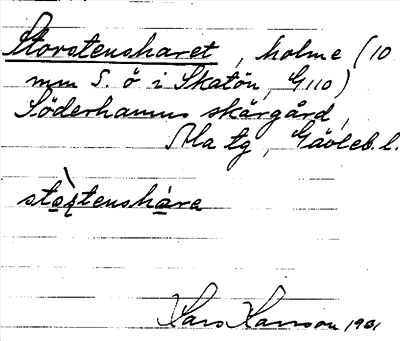 Storstensharet, holme (10
mm S. ö i Skatön, G110)
Söderhamns skärgård,
Ala tg, Gävleb. l.
stoṣtenshara
Lars Larsson 1931